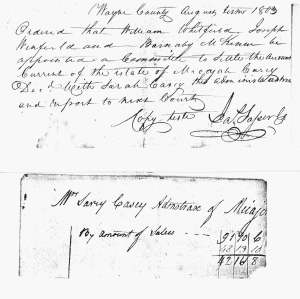 Wayne County August term 1803
Ordered that William Whitfield Joseph
Winfield and Barnaby McKinne be
appointed a Committe to State the account
Current of the estate of Micajah Casey
Decd. with Sarah Casey the adminis
and report to next Court
Copy teste
Mrs Sarey Casey Admtrax of Micajo
By amount of Sales - - -
42 16 8